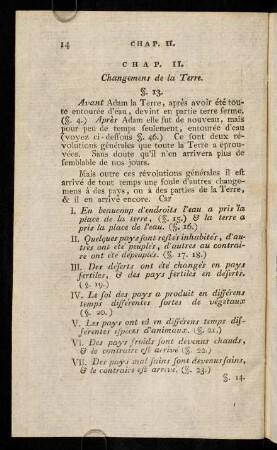 14 CHAP. II.
CHAP. II.
Changemens de la Terre.
§. 13.
Avant Adam la Terre, après avoir été tou-
te entourée d'eau, devint en partie terre ferme.
(§. 4.) Après Adam elle fut de nouveau, mais
pour peu de temps seulement, entourée d'eau
(voyez ci-dessous §. 46.) Ce sont deux ré-
volutions générales que toute la Terre a éprou-
vées. Sans doute qu'il n'en arrivera plus de
semblable de nos jours.
Mais outre ces révolutions générales il est
arrivé de tout temps une foule d'autres change-
mens à des pays, ou à des parties de la Terre,
& il en arrive encore. Car
I. En beaucoup d'endroits l'eau a pris la
place de la terre, (§. 15.) & la terre a
pris la place de l'eau. (§. 16.)
II. Quelques pays sont restés inhabités, d'au-
tres ont été peuplés, d'autres au contrai-
re ont été dépeuplés. (§. 17. 18.)
III. Des déserts ont été changés en pays
fertiles, & des pays fertiles en déserts.
(§. 19.)
IV. Le sol des pays a produit en différens
temps différentes sortes de végétaux
(§. 20.)
V. Les pays ont eu en différens temps dif-
férentes espèces d'animaux. (§. 21.)
VI. Des pays froids sont devenus chauds,
& le contraire est arrivé (§. 22.)
VII. Des pays mal sains sont devenus sains,
& le contraire est arrivé. (§. 23.)
§. 14.